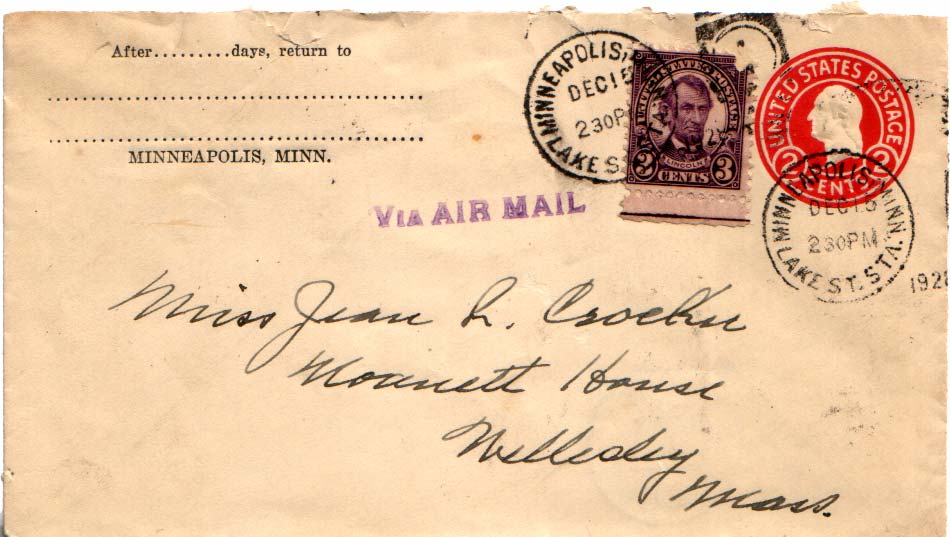 After.........days, return to
MINNEAPOLIS, MINN.
MINNEAPOLIS,
DEC 15
2 30 P
LAKE ST.
STA.
UNITED STATES POSTAGE
LINCOLN
3 CENTS 3
UNITED STATES POSTAGE
2 CENTS 2
MINNEAPOLIS, MINN.
DEC 15
2 30 PM
LAKE ST. STA.
1928
VIA AIR MAIL
Miss Jean L. Crocker
House
Wellesley
Mass.